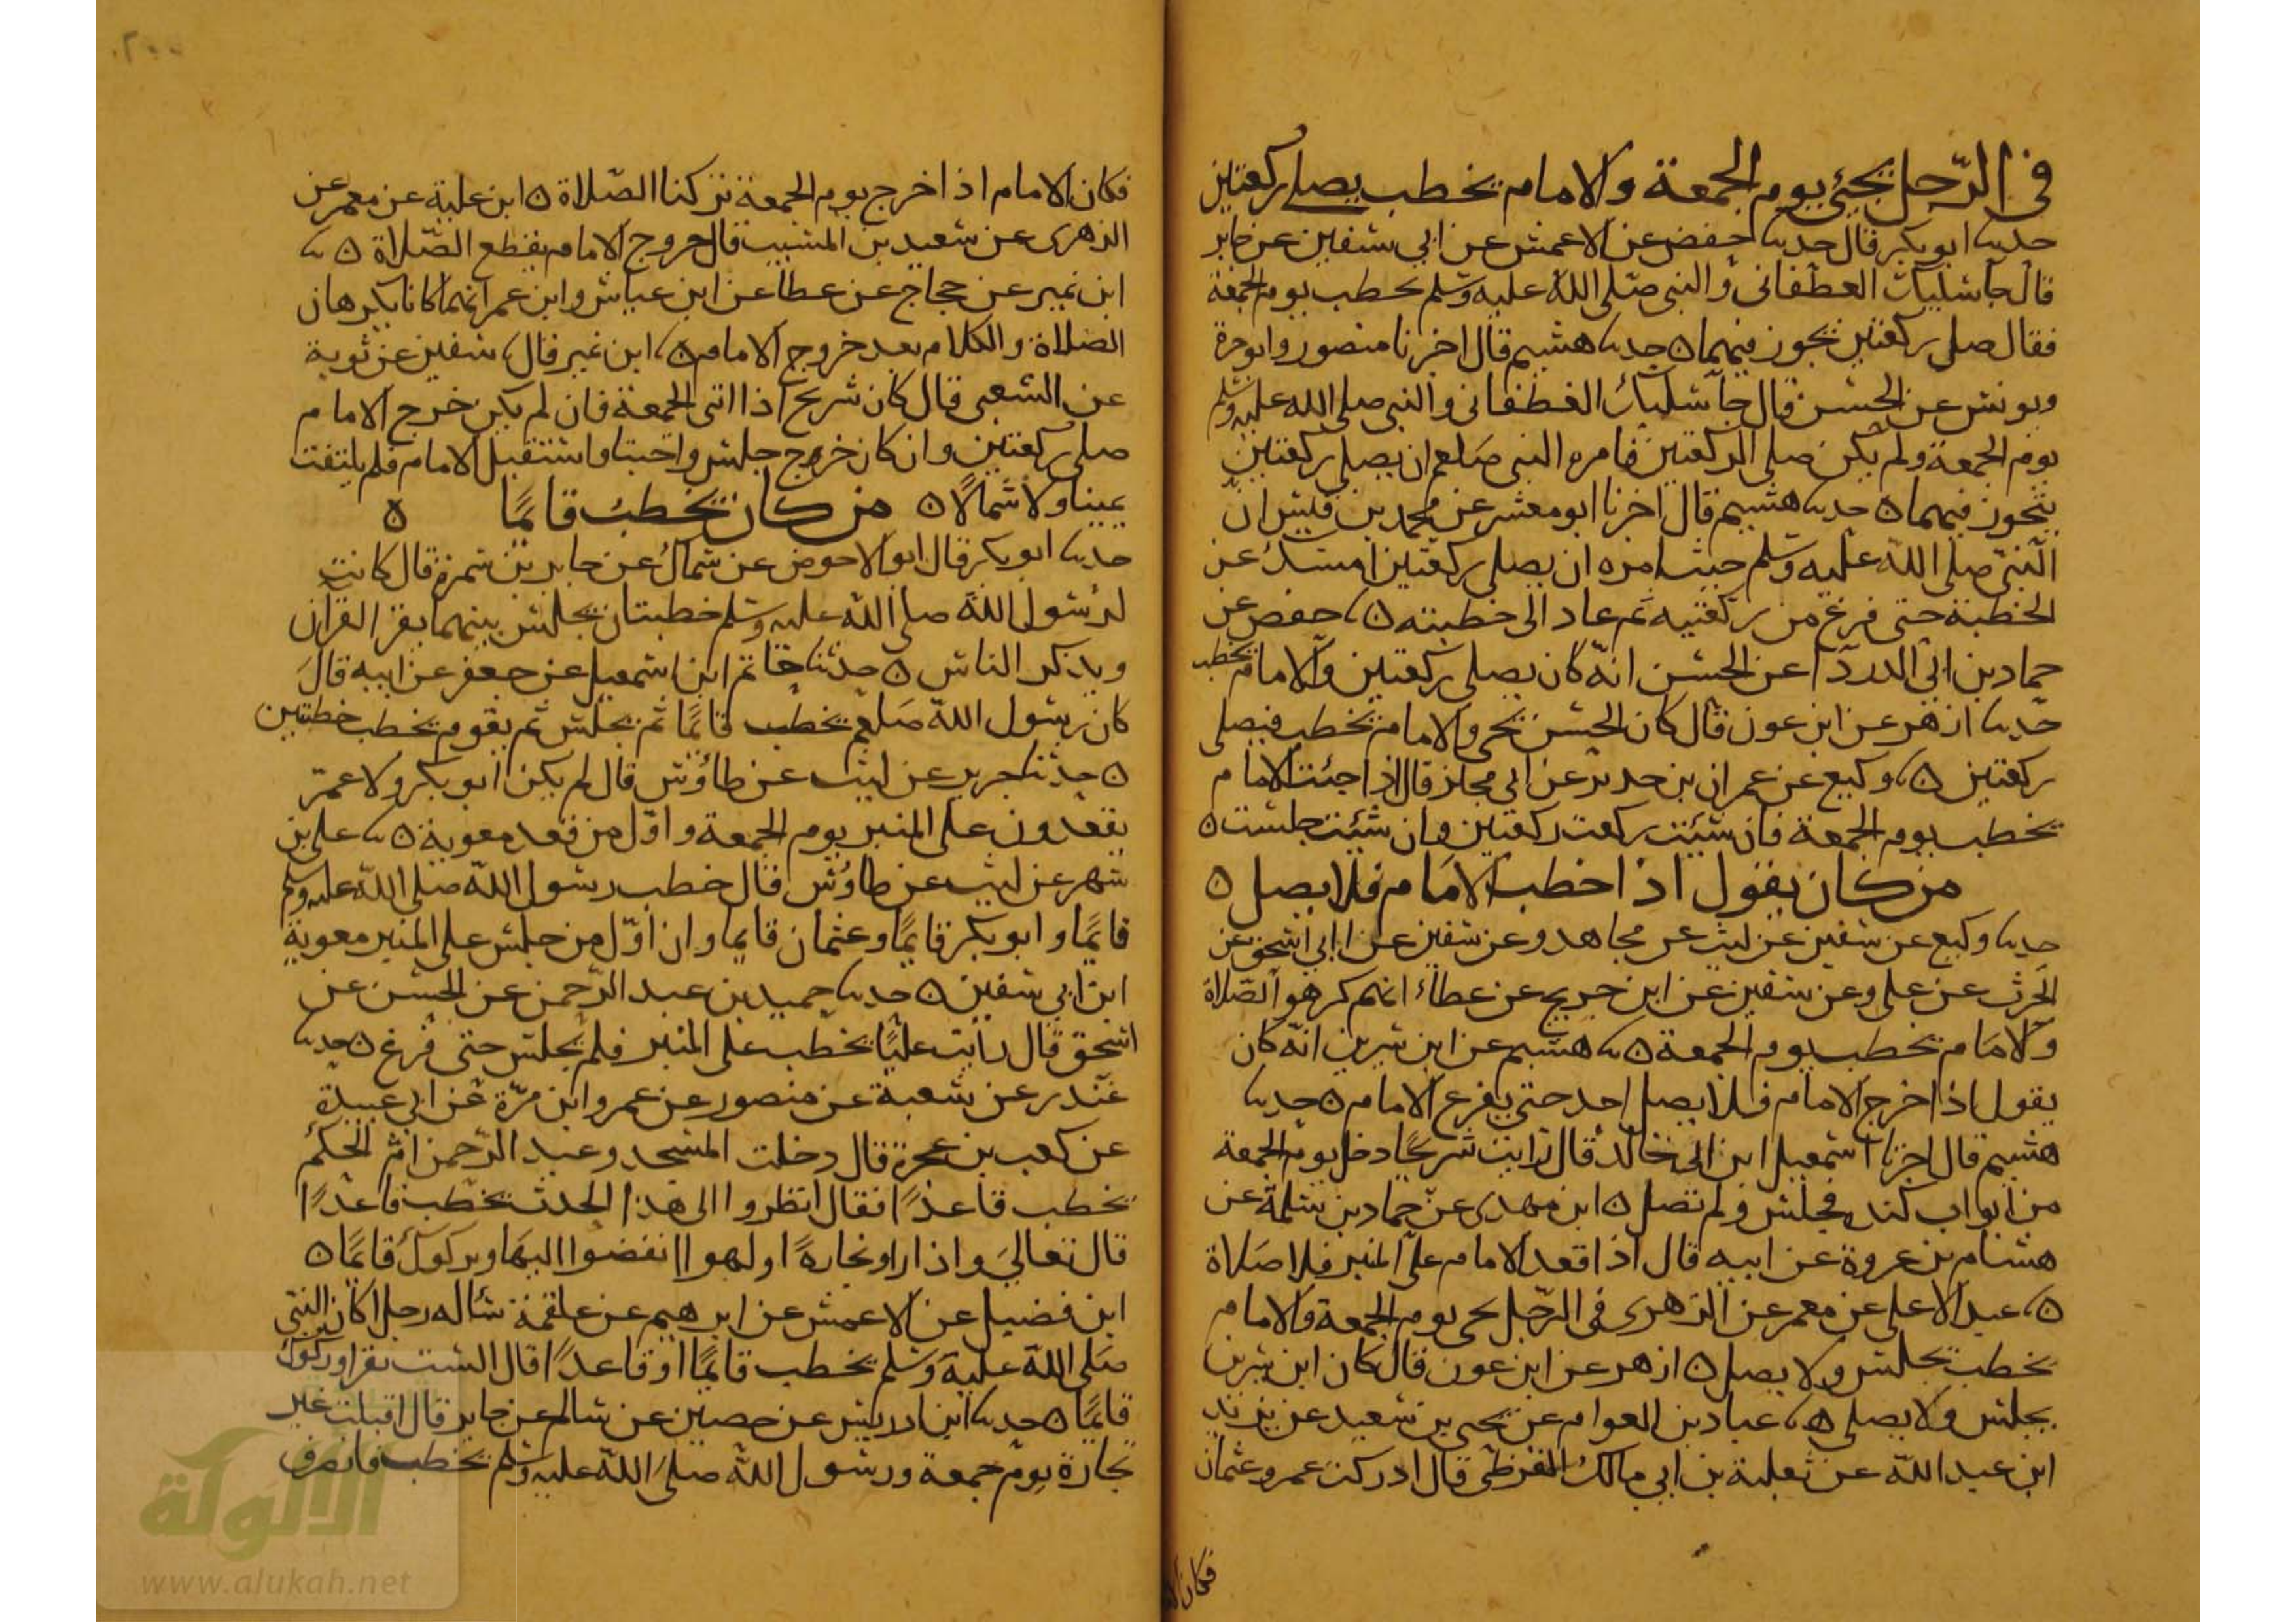 في الرجل يجيئ يوم الجمعة والامام يخطب يصلي ركعتين
حدثنا ابو بكر قال حدثنا حفص عن الاعمش عن ابي سفين عن جابر
قال جا سليك الغطفاني والنبي صلى الله عليه وسلم يخطب يوم الجمعة
فقال صلي ركعتين تجوز فيهما ٥ حدثنا هشيم قال اخبرنا منصور وابو حرة
ويونس عن الحسن قال جا سليك الغطفاني والنبي صلى الله عليه وسلم
يوم الجمعة ولم يكن صلى الركعتين فامره النبي صلعم ان يصلي ركعتين
يتجوز فيهما ٥ حدثنا هشيم قال اخبرنا ابو معشر عن محمد بن قيس ان
النبي صلى الله عليه وسلم حيث امره ان يصلي ركعتين امسك عن
الخطبة حتى فرغ من ركعتيه ثم عاد الى خطبته ٥ حفص عن
حماد بن ابي الدردا عن الحسن انه كان يصلي ركعتين والامام يخطب
حدثنا ازهر عن ابن عون قال كان الحسن يجي والامام يخطب فيصلي
ركعتين ٥ وكيع عن عمران بن حدير عن ابي مجلز قال اذا جئت الامام
يخطب يوم الجمعة فان شئت ركعت ركعتين وان شئت جلست ٥
من كان يقول اذا خطب الامام فلا يصل ٥
حدثنا وكيع عن سفين عن ليث عن مجاهد وعن سفين عن ابي اسحق عن
الحرث عن علي وعن سفين عن ابن جريج عن عطاء انهم كرهوا الصلاة
والامام يخطب يوم الجمعة ٥ هشيم عن ابن سيرين انه كان
يقول اذا خرج الامام فلا يصل احد حتى يفرغ الامام ٥ حدثنا
هشيم قال اخبرنا اسمعيل ابن ابي خالد قال رايت شريحا دخل يوم الجمعة
من ابواب كنده فجلس ولم تصل ٥ ابن مهدي عن حماد بن سلمة عن
هشام بن عروة عن ابيه قال اذا قعد الامام على المنبر فلا صلاة
٥ عبد الاعلى عن معمر عن الزهري في الرجل يجي يوم الجمعة والامام
يخطب يجلس ولا يصل ٥ ازهر عن ابن عون قال كان ابن سيرين
يجلس ولا يصلي ٥ عباد بن العوام عن يحيى بن سعيد عن يزيد
ابن عبد الله عن ثعلبة بن ابي مالك القرظي قال ادركت عمر وعثمان
فكان الا
فكان الامام اذا خرج يوم الجمعة تركنا الصلاة ٥ ابن علية عن معمر عن
الزهري عن سعيد بن المسيب قال خروج الامام يقطع الصلاة ٥
ابن نمير عن حجاج عن عطا عن ابن عباس وابن عمر انهما كانا يكرهان
الصلاة والكلام بعد خروج الامام ٥ ابن نمير قال سفين عن ثوية
عن الشعبي قال كان شريح اذا اتى الجمعة فان لم يكن خرج الامام
صلى ركعتين وان كان خرج جلس واحتبا واستقبل الامام فلم يلتفت
يمينا ولا شمالا ٥ من كان يخطب قائما ٥
حدثنا ابو بكر قال ابو الاحوص عن سماك عن جابر بن سمرة قال كانت
لرسول الله صلى الله عليه وسلم خطبتان يجلس بينهما يقرا القران
ويذكر الناس ٥ حدثنا حاتم ابن اسمعيل عن جعفر عن ابيه قال
كان رسول الله صلعم يخطب قائما ثم يجلس ثم يقوم يخطب خطبتين
٥ حدثنا جرير عن ليث عن طاؤس قال لم يكن ابو بكر ولا عمر
يقعدون على المنبر يوم الجمعة واول من قعد معوية ٥ علي بن
شهر عن ليث عن طاؤس قال خطب رسول الله صلى الله عليه وسلم
قائما وابو بكر قائما وعثمان قايما وان اول من جلس على المنبر معوية
ابن ابي سفين ٥ حدثنا حميد بن عبد الرحمن عن الحسن عن
اسحق قال رايت عليا يخطب على المنبر فلم يجلس حتى فرغ ٥ حدثنا
غندر عن شعبة عن منصور عن عمرو ابن مرة عن ابي عبيدة
عن كعب بن عجرة قال دخلت المسجد وعبد الرحمن ام الحكم
يخطب قاعدا فقال انظروا الى هذا الحدث يخطب قاعدا
قال تعالى واذا راو تجارة او لهوا انفضوا اليها وتركوك قائما ٥
ابن فضيل عن الاعمش عن ابرهيم عن علقمة ساله رجل اكان النبي
صلى الله عليه وسلم يخطب قائما او قاعدا قال الست تقرا وتركوك
قايما ٥ حدثنا ابن ادريس عن حصين عن سالم عن جابر قال اقبلت عير
تجارة يوم جمعة ورسول الله صلى الله عليه وسلم يخطب فانصرف
الألوكة
www.alukah.net